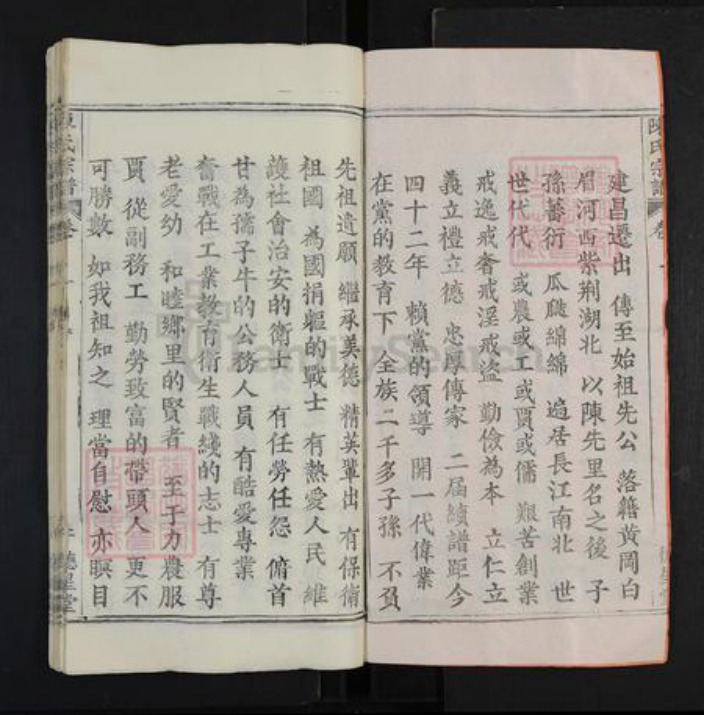 陳氏宗譜
建昌遷出 傳至始祖先公 落籍黃岡白
眉河西紫荆湖北 以陳先里名之後 子
孫蕃衍 瓜瓞綿綿 遍居長江南北 世
世代代 或農或工或賈或儒 艱苦創業
戒逸戒奢戒淫戒盜 勤儉為本 立仁立
義立禮立德 忠厚傳家 二届續譜距今
四十二年 賴黨的領導 開一代偉業
在黨的教育下 全族二千多子孫 不負
先祖遺願 繼承美德 精英輩出 有保衛
祖國 為國捐軀的戰士 有熱愛人民 維
護社會治安的衛士 有任勞任怨 俯首
甘為孺子牛的公務人員 有酷愛專業
奮戰在工業教育衛生戰綫的志士 有尊
老愛幼 和睦鄉里的賢者 至于力農服
賈 從副務工 勤勞致富的帶頭人 更不
可勝數 如我祖知之 理當自慰 亦瞑目
陳氏宗譜 卷
德星堂
FamilySearch